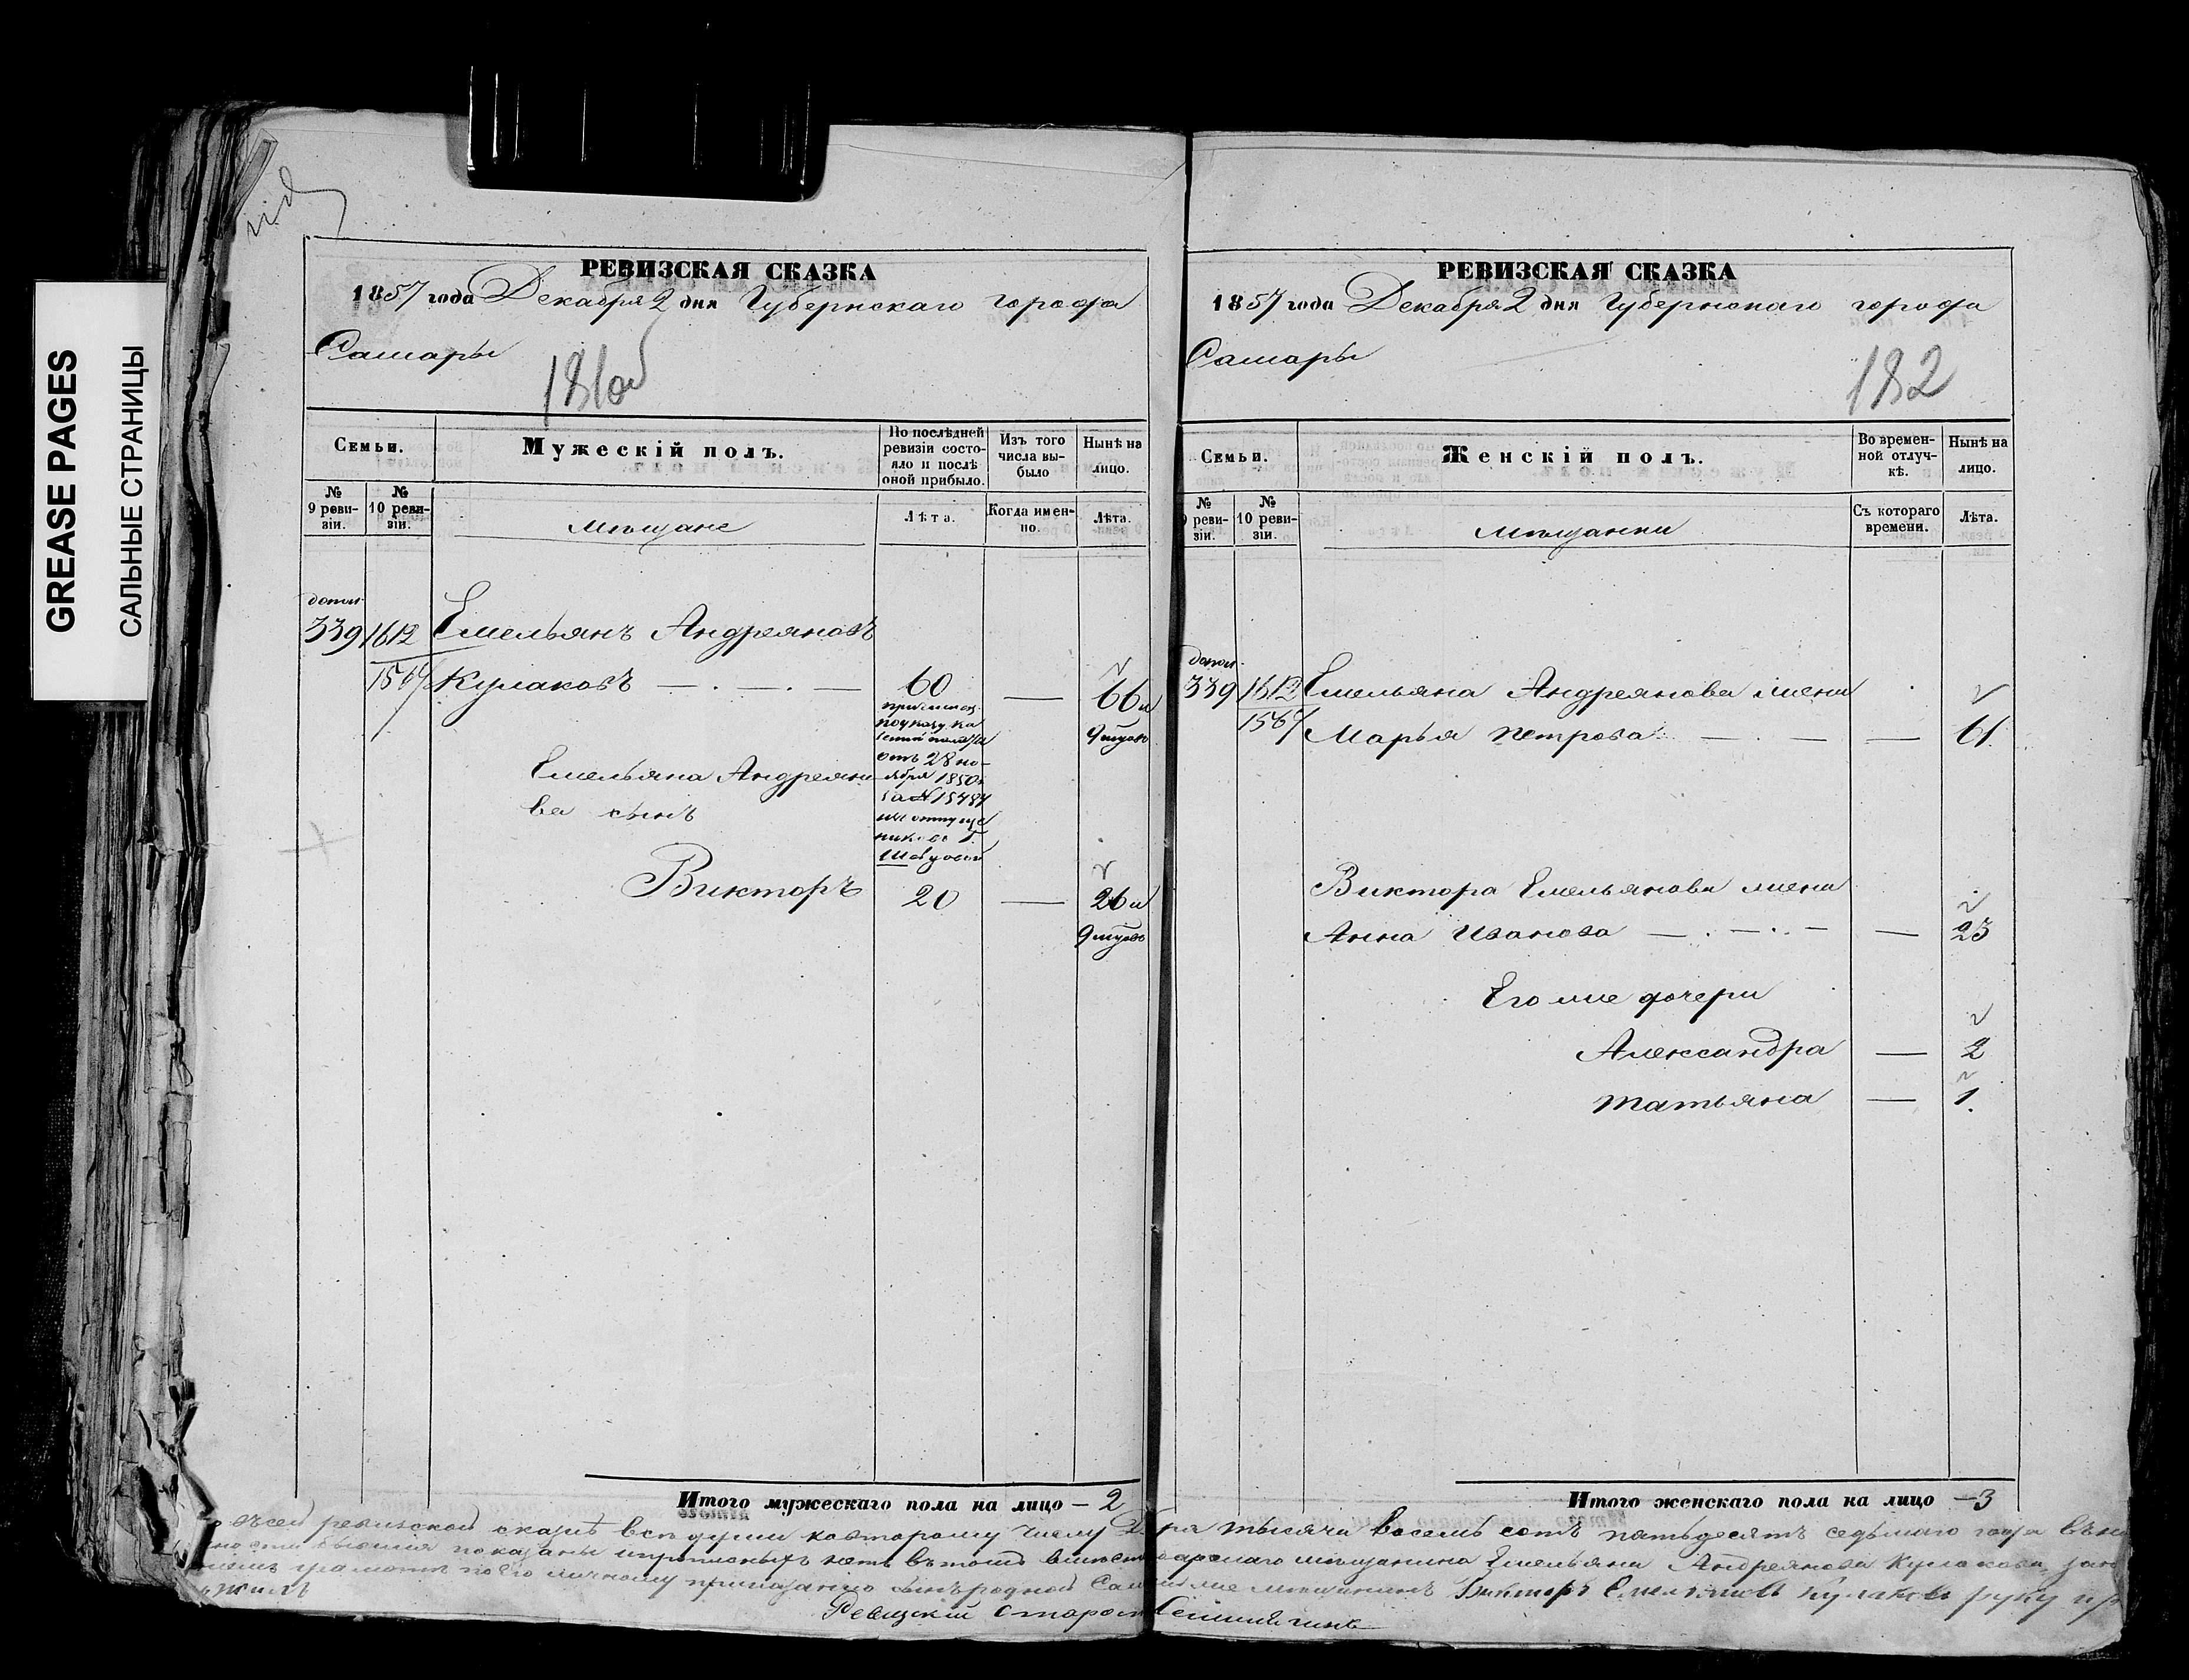 GREASE PAGES
САЛЬНЫЕ СТРАНИЦЫ
РЕВИЗСКАЯ СКАЗКА
1857 года Декабря 2 дня Губернскаго города
Самары
181об
Семьи.
Мужескій полъ.
По послѣдней ревизіи состояло и послѣ оной прибыло.
Изъ того числа выбыло
Нынѣ на лицо.
№ 9 ревизіи.
№ 10 ревизіи.
мѣщане
Лѣта.
Когда именно.
Лѣта.
допол.
339 1612 Емельянъ Андреяновъ
1567 Кулаковъ — . — . — 60 — 66 и
9 мѣсяц
причислен.
по указу ка
зенной палаты
отъ 28 но-
ября 1850 г.
за № 15484
изъ отпуще
никовъ Г.
Емельяна Андреяно
ва сынъ
Викторъ 20 — 26 и
9 мѣсяц
Итого мужескаго пола на лицо — 2
РЕВИЗСКАЯ СКАЗКА
1857 года Декабря 2 дня Губернскаго города
Самары
182
Семьи.
Женскій полъ.
Во временной отлучкѣ.
Нынѣ на лицо.
№ 9 ревизіи.
№ 10 ревизіи.
мѣщанки
Съ котораго времени.
Лѣта.
допол.
339 1612 Емельяна Андреянова жена
1567 Марья Петрова — . — — 61.
Виктора Емельянова жена
Анна Иванова — . — . — — 23
Его же дочери
Александра — 2
Татьяна — 1.
Итого женскаго пола на лицо — 3
всей ревизской сказкѣ всѣ души ко второму числу Д бря тысяча восемь сотъ пятьдесятъ седьмаго года въ
показаны и прописныхъ нѣтъ въ томъ вмѣсто мѣщанина Емельяна Андреянова Кулакова
грамотѣ по его личному приказанію сынъ родной мѣщанинъ Викторъ Емельяновъ Кулаковъ руку пр
иложилъ
Ревизскій Староста